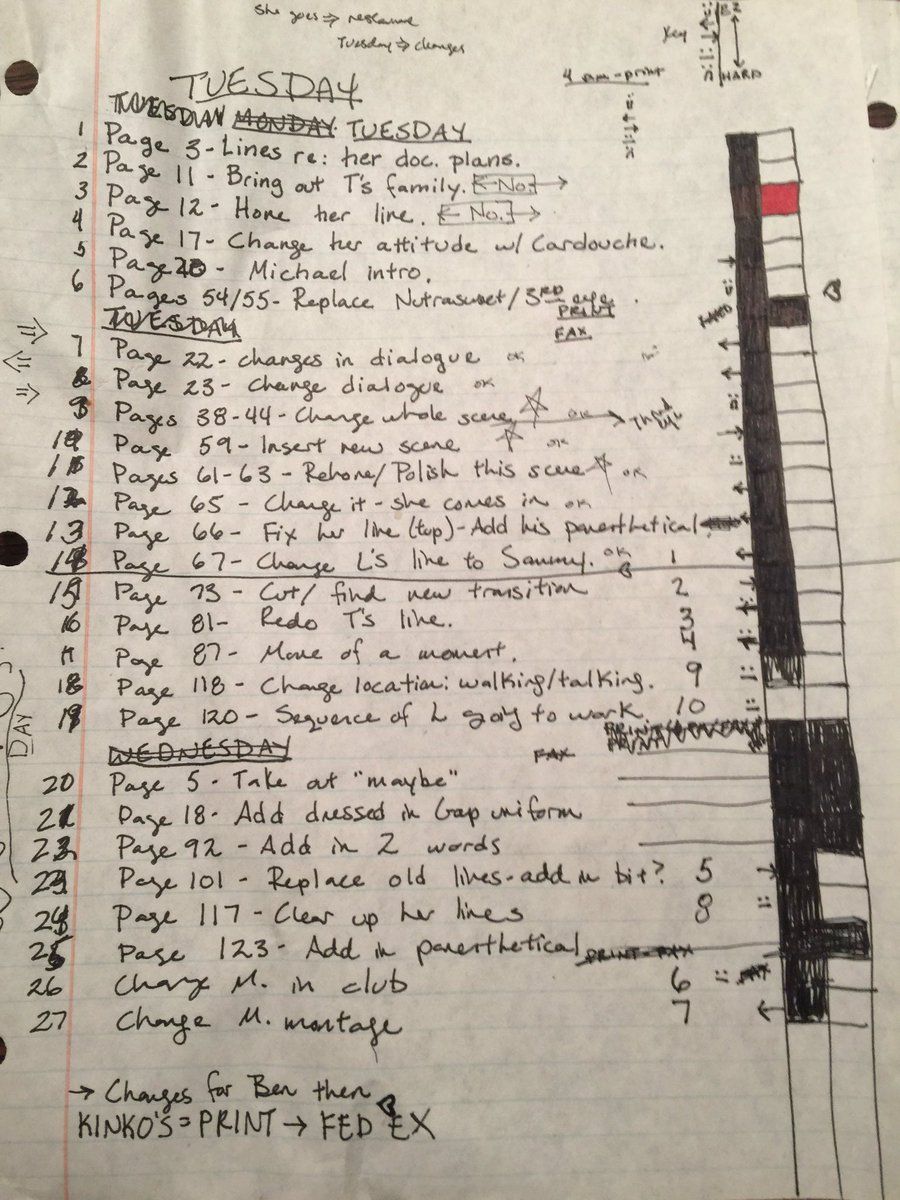 she goes ⇒ rename
Tuesday ⇒ changes
Key
EZ
HARD
4 am - print
TUESDAY
TUESDAY MONDAY TUESDAY
1 Page 3 - Lines re: her doc. plans.
2 Page 11 - Bring out T's family. ← No. →
3 Page 12 - Hone her line. ← No. →
4 Page 17 - Change her attitude w/ Cardouche.
5 Page 20 - Michael intro.
6 Pages 54/55 - Replace Nutrasweet/3RD eye.
PRINT
FAX
TUESDAY
7 Page 22 - changes in dialogue ok
8 Page 23 - Change dialogue ok
9 Pages 38-44 - Change whole scene ☆ ok →
10 Page 59 - Insert new scene ☆ ok
11 Pages 61-63 - Rehone/Polish this scene ☆ ok
12 Page 65 - Change it - she comes in ok
13 Page 66 - Fix her line (top) - Add his parenthetical
14 Page 67 - Change L's line to Sammy. ok 1
15 Page 73 - Cut/find new transition 2
16 Page 81 - Redo T's line. 3
4
17 Page 87 - More of a moment.
18 Page 118 - Change location: walking/talking. 9
19 Page 120 - Sequence of L going to work 10
DAY
WEDNESDAY
FAX
20 Page 5 - Take out "maybe"
21 Page 18 - Add dressed in Gap uniform
22 Page 92 - Add in 2 words
23 Page 101 - Replace old lines - add in bit? 5
24 Page 117 - Clear up her lines 8
25 Page 123 - Add in parenthetical PRINT - FAX
26 Change M. in club 6
27 Change M. montage 7
→ Changes for Ben then
KINKO'S = PRINT → FED EX